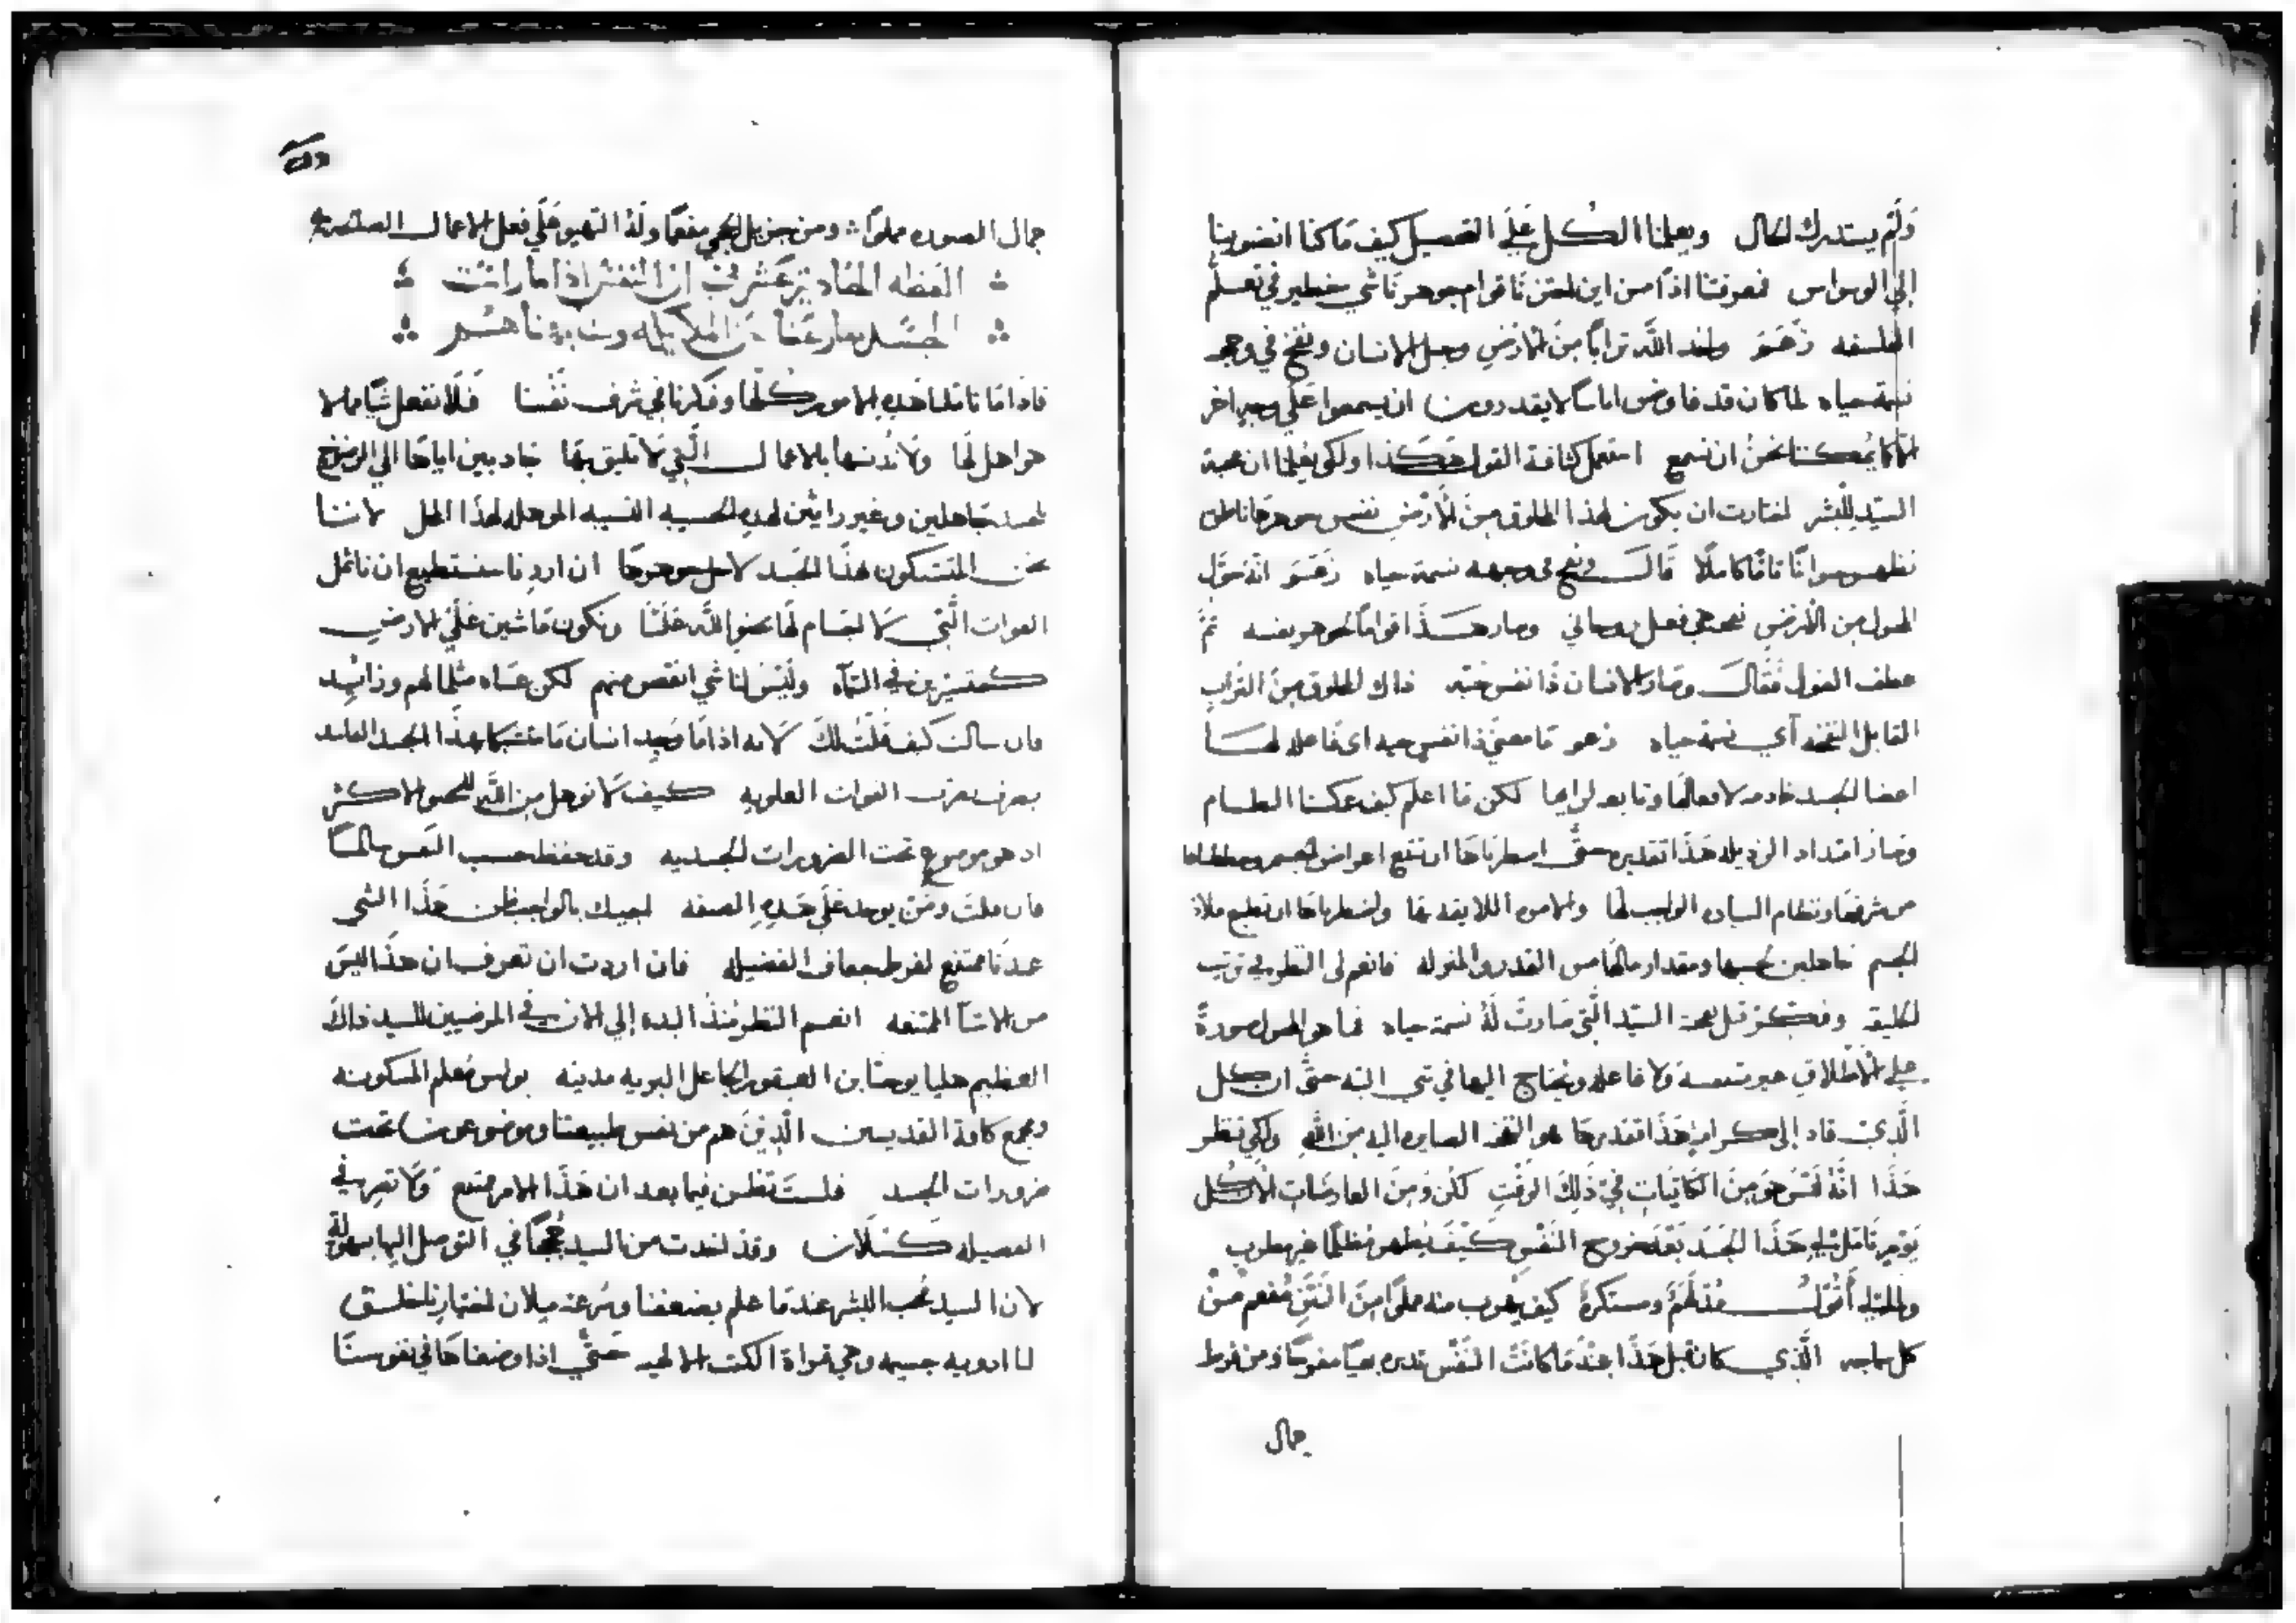 وَلَم يستدرك الحال ويعلمنا الكل علَي التفصيل كيف مَا كنا انضوينا
الي الوسواس فعرفتنا اذًا من اين لحقتنَا قوام جوهرنَا شي خطير في تعلم
الفلسفه زعَمَ واخذ اللَّه ترابًا منَ الارضِ وجبل الانسان ونفخ في وجهه
نسمة حياه لما كان قد فاوض اناسًا لا يقدرون ان يسمعوا علَي وجهٍ اخر
الَّا كما يُمكننا نحنُ ان نسمع استعمل كثافة القول هَكَذا ولكي يعلمنا ان محبة
السيّد للبشر اختارت ان يكون لهذا المخلوق منَ الأرضِ نفس جوهرها ناطق
تظهر حيوانًا تامًا كاملًا قَالَ ونفخ في وجهه نسمة حياه زعَمَ انهَ خوَّل
المجبول من الأرضِ نفخه هي فعل روحاني وصار هَذَا قوامًا لجوهر نفسه ثمَّ
عطف القول فقَالَ وصَار الانسان ذَا نفس حيّه ذاك المخلوق منَ التراب
القابل النفخه آي نسمة حياه زعم مَا معنَي ذا نفس حيه اى فَاعله لهَا
اعضا الجسد خادمه لافعالهَا وتابعه لرايها لكن مَا اعلم كيف عكسنا النظام
وصَار امتداد الرذيله هَذَا تقديره حتَّى اضطرتاهَا ان تتبع اعراض الجسم
من شرفهَا ونظام السياده الواجب لهَا والامور اللايقه بهَا واضطرتاهَا ان تطيع ملاذ
الجسم جاهلين حسبها ومقدار مالهَا من القدر والمنزله فانعم لي النظر في ترتيب
الخليقه وفكر قبل نفخة السيّد التَّي صَارت لَهُ نسمة حياه فما هو المجبول صورةً
علي الاطلاقِ غير متنفسة ولا فاعله وتحتاج اليها في شي البته حتَّي ان كل
الَّذيِ قاد إلي كرامةٍ هَذَا تقديرهَا هو النفخه الصايره اليه من اللَّهِ ولكي تنظر
هَذَا انَّهُ لَيْسَ هوَ منَ الكَاينَات في ذَلِكَ الوَقْتِ لكن وَمِنَ العارضَات الآن كل
يَوْمٍ تَامَّل لي هَذَا الجَسَدَ بَعْدَ خروج النَّفْسِ كَيْفَ يظهر مُظلِمًا غير مطرب
كيف يهرب منه مملوًا منَ النَّتَنِ مُفعَم منْ
كل سماجه الَّذي كان قبل هَذَا عِنْدَ مَا كانَتْ النَفْس تدبره بهيًا مفرحًا ومن فرط
جمال
جمال الصوره مملوًا ومن جزيل الحجي مفعمًا ولَهُ التهيو عَلَي فعل الاعمال الصالحه
العظه الثَّانيه عَشر في ان النفس اذا ما راتت
الجسَد بما رعَنا عن الملايكه وشابهناهُم
فاذَا مَا تَامَلنا هَذِهِ الامور كلّهَا وفكَّرنا في شرف نَفْسنا فَلا نفعل شيًا مما لا
هو اهل لهَا ولا نُدنسها بالاعمال الَّتي لا تليق بِهَا جاذبين اياهَا الي الرضوخ
للجسد جَاهلين وغير راثين لهذِهِ الحسيبه النسيبه الموهله لهذَا المحل لاننا
نحن المتشبكون بهذَا الجَسَد لاجل جوهرهَا ان اردنا سنستطيع ان نماثل
القوات الَّتي لا اجسَام لهَا بمعونة اللَّه عَلَنا ونكون مَاشين علَي الارضِ
كمتصرفين في السَّمآء ولَيْسَ لنا شي انقص منهم لكن عسَاه مثلما لهم وزايد
فان سالت كيف قلْتُ لكَ لانه اذا مَا وجد انسان مَا مشتبكا بهذَا الجسد الفاسد
يعرف تصرف القوات العلويه كيفَ لا يوهل من اللَّهِ للحظ الاكثر
اذ هو موضوع تحت الضرورات الجسديه وقد حفظ حسب النفس سالمًا
فان قلتَ ومَن يوجد علَي هَذِهِ الصفه اجيبك بالواجب ظن هَذَا الشي
عندنَا ممتنع لفرط جفاف الفضيله فان اردت ان تعرف ان هذَا ليسَ
من الاشيآ الممتنعه انعم النظر مُنذُ البدء إلي الان في المرضيين للسيد ذاك
العظيم هليا يوحنا بن العاقر الجاعل البريه مدينه بولس مُعلم المسكونه
ومجمع كافة القديسين الَّذينَ هم من نفس طبيعتنا وموضوعون تحت
ضرورات الجسد فلستَ تظن فيما بعد ان هَذَا الامر ممتنع وَلا تصر في
الفضيله كَسْلان وقد اخذت من السيد حججًا في التوصل اليها بسهولة
لان السيد محب البشر عندمَا علم بضعفنا وسُرعة ميلان اختيارنا خلق
لنا ادويه جسيمه وهي قراة الكتب الالهيه حَتَّي اذا وضعناهَا في نفوسنَا